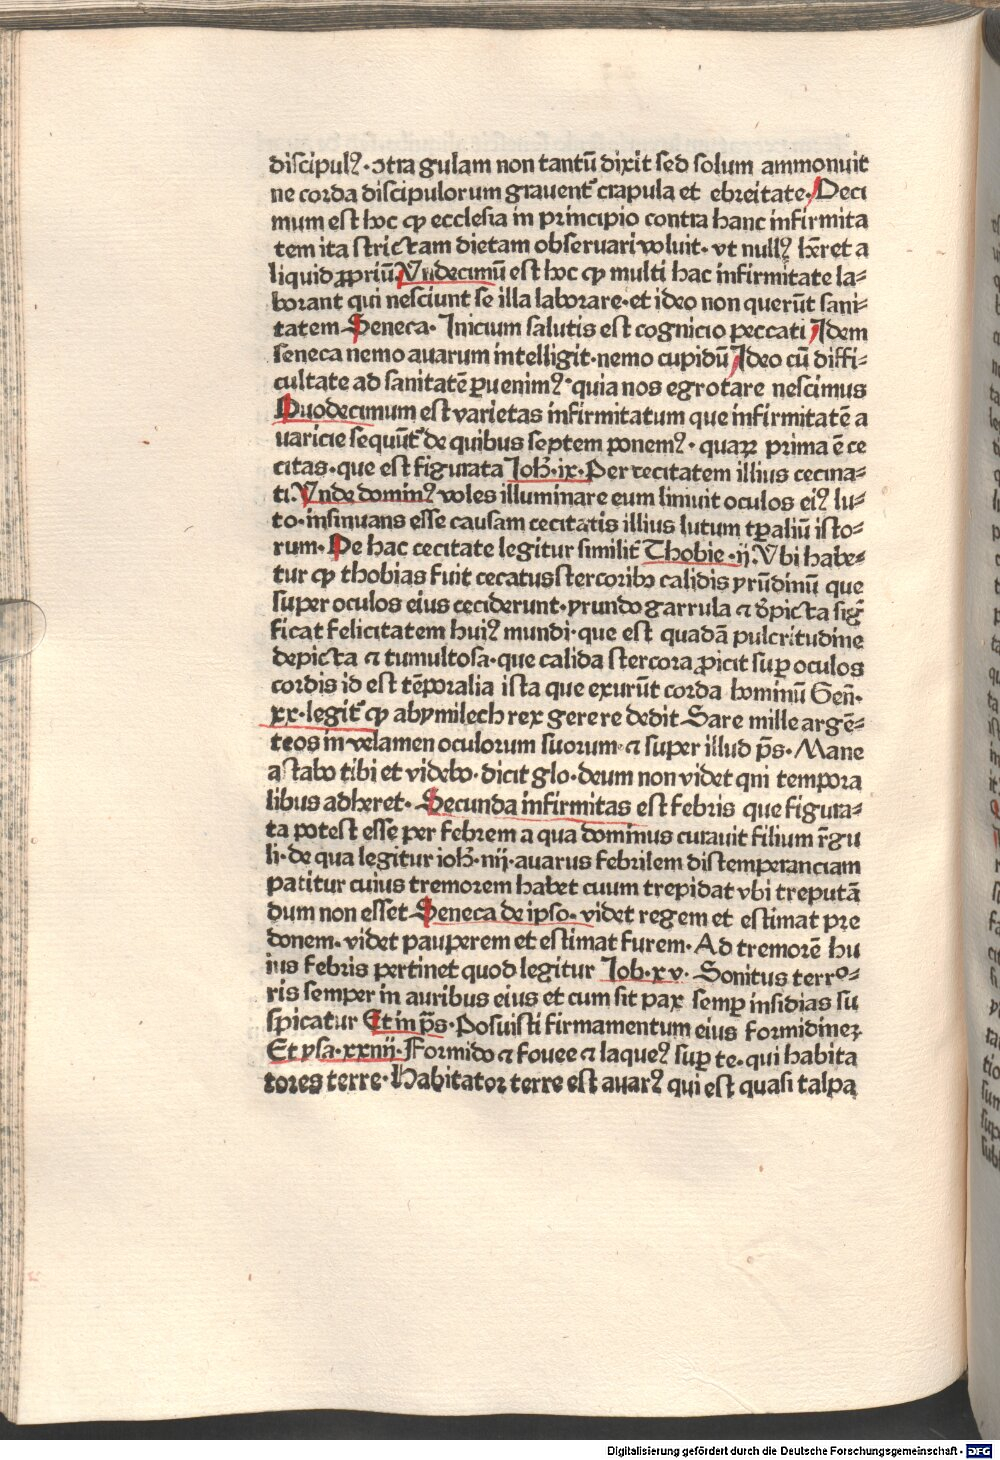 discipulꝰ · ↄtra gulam non tantū dixit sed solum ammonuit
ne corda discipulorum grauentᷣ crapula et ebreitate · Deci
mum est hoc ꝙ ecclesia in principio contra hanc infirmita
tem ita strictam dietam obseruari voluit · vt nullꝰ hr̄et a
liquid ꝓpriū · Vndecimū est hoc ꝙ multi hac infirmitate la⸗
borant qui nesciunt se illa laborare · et ideo non querūt sani⸗
tatem Seneca · Inicium salutis est cognicio peccati Idem
seneca nemo auarum intelligit · nemo cupidū Ideo cū diffi⸗
cultate ad sanitatē ꝑuenimꝰ · quia nos egrotare nescimus
Duodecimum est varietas infirmitatum que infirmitatē a
uaricie sequūtᷣ de quibus septem ponemꝰ · quaꝝ prima ē ce
citas · que est figurata Ioh̄ · ix · Per cecitatem illius cecina⸗
ti · Vnde dominꝰ voles illuminare eum limuit oculos eiꝰ lu⸗
to · insinuans esse causam cecitatis illius lutum tꝑaliū isto⸗
rum · De hac cecitate legitur similitᷣ Thobie · ij · Vbi habe⸗
tur ꝙ thobias fuit cecatus stercoribꝰ calidis yrūdinū que
super oculos eius ceciderunt · yrundo garrula ⁊ d̓picta siḡ
ficat felicitatem huiꝰ mundi · que est quadā pulcritudine
depicta ⁊ tumultosa · que calida stercora ꝓicit suꝑ oculos
cordis id est tēporalia ista que exurūt corda hominū Gen̄ ·
xx · legitᷣ ꝙ abymilech rex gerere dedit Sare mille argē⸗
teos in velamen oculorum suorum · ⁊ super illud p̄s · Mane
astabo tibi et videbo · dicit glo · deum non videt qni tempora
libus adheret · Secunda infirmitas est febris que figura⸗
ta potest esse per febrem a qua dominus curauit filium r̄gu
li · de qua legitur ioh̄ · iiij · auarus febrilem distemperanciam
patitur cuius tremorem habet cuum trepidat vbi treputā
dum non esset Seneca de ipso · videt regem et estimat pre
donem · videt pauperem et estimat furem · Ad tremorē hu
ius febris pertinet quod legitur Iob · xv · Sonitus terro⸗
ris semper in auribus eius et cum sit pax semꝑ insidias su
spicatur Et in p̄s · Posuisti firmamentum eius formidineꝫ
Et ysa · xxiiij · Formido ⁊ fouee ⁊ laqueꝰ suꝑ te · qui habita
tores terre · Habitator terre est auarꝰ qui est quasi talpa
Digitalisierung gefördert durch die Deutsche Forschungsgemeinschaft - DFG